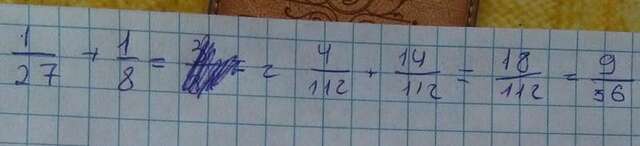 1/27 + 1/8 = = 4/112 + 14/112 = 18/112 = 9/56